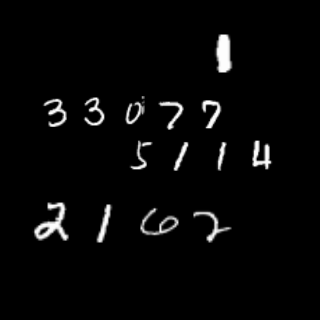 1
33077
5114
2162